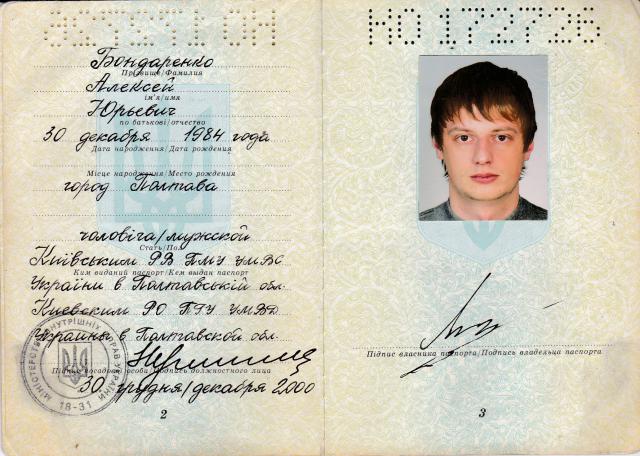 Бондаренко
Прізвище/Фамилия
Алексей
ім'я/имя
Юрьевич
по батькові/отчество
30 декабря 1984 года
Дата народження/Дата рождения
Місце народження/Место рождения
город Полтава
чоловіча/мужской
Стать/Пол
Київським РВ ПМУ УМВС
Ким виданий паспорт/Кем выдан паспорт
України в Полтавській обл.
Киевским РО ПГУ УМВД
Украины в Полтавской обл.
Підпис посадової особи/Подпись должностного лица
30 грудня/декабря 2000
МІНІСТЕРСТВО ВНУТРІШНІХ СПРАВ УКРАЇНИ
18-31
2
НО 172726
Підпис власника паспорта/Подпись владельца паспорта
3